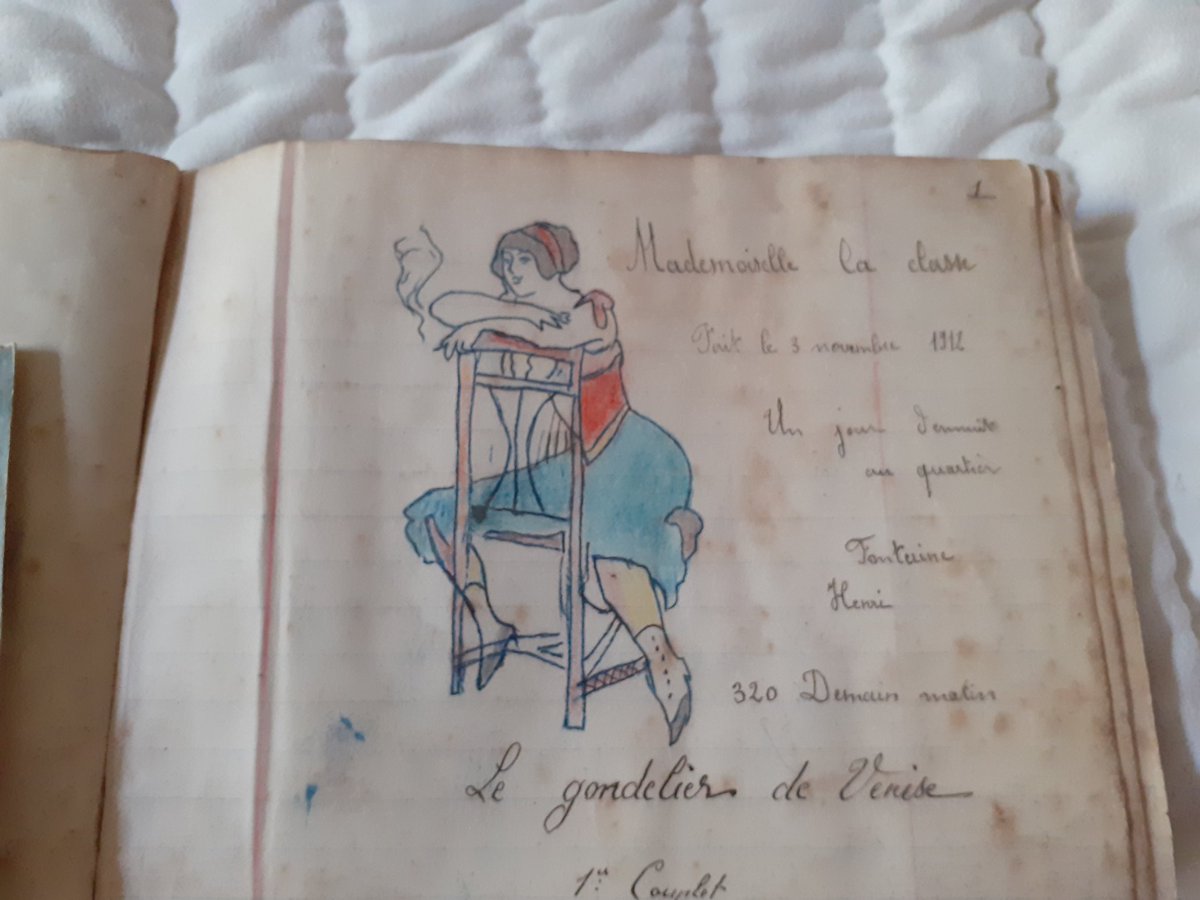 1
Mademoiselle la classe
Fait le 3 novembre 1912
Un jour d'ennuie
au quartier
Fontaine
Henri
320 Demain matin
Le gondelier de Venise
1er Couplet